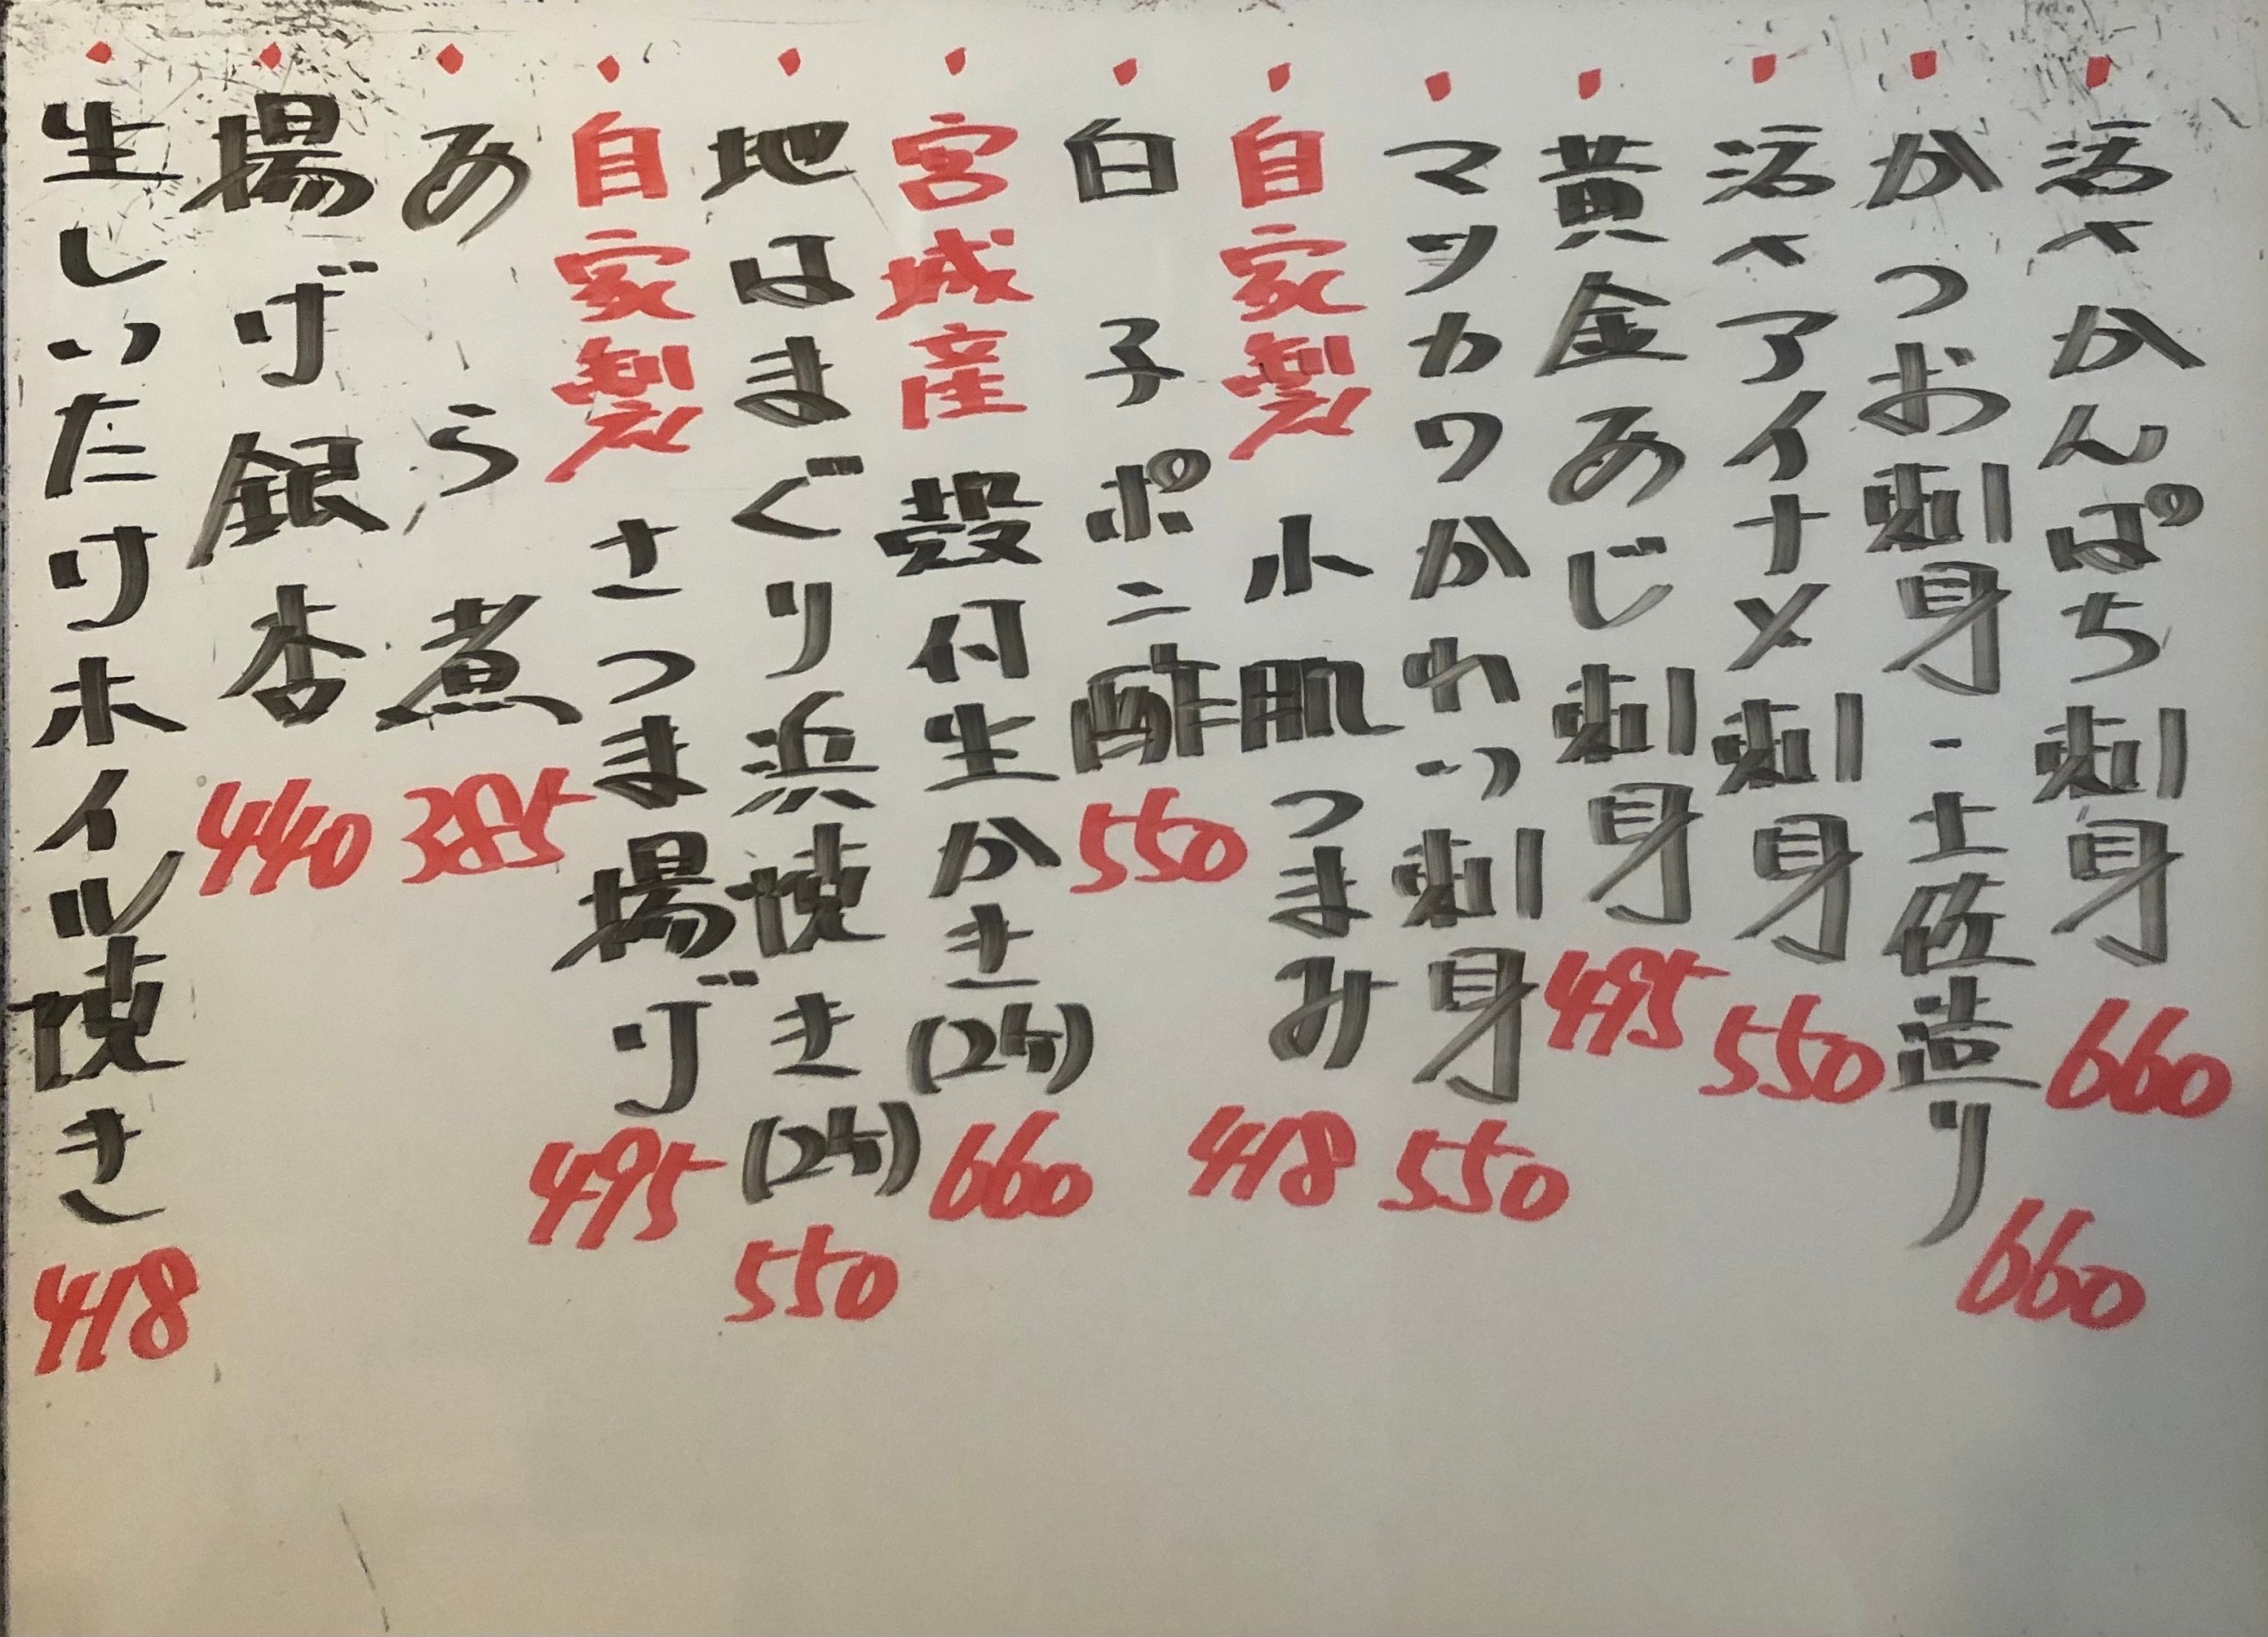 ・活〆かんぱち刺身 660
・かつお刺身・土佐造り 660
・活〆アイナメ刺身 550
・黄金あじ刺身 495
・マツカワかれい刺身 550
・自家製 小肌つまみ 418
・白子ポン酢 550
・宮城産 殻付生かき(2ケ) 660
・地はまぐり浜焼き(2ケ) 550
・自家製 さつま揚げ 495
・あら煮 385
・揚げ銀杏 440
・生しいたけホイル焼き 418